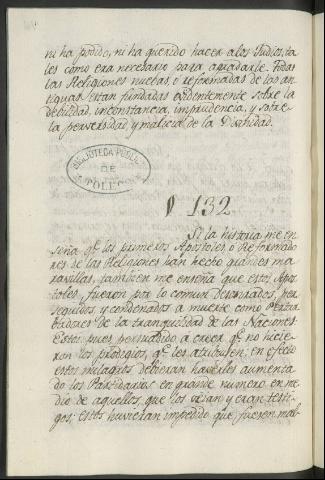 ni ha podido, ni ha querido hacer a los Indios, ta
les como era necesario para agradarle. Todas
las Religiones nuebas, ó reformadas de las an
tiguas estan fundadas evidentemente sobre la
debilidad, inconstancia, imprudencia, y sobre
la perversidad, y malicia de la Divinidad.
BIBLIOTECA PUBLICA
DE
TOLEDO
§ 132
Si la historia me en
seña qᵉ los primeros Apostoles ó Reformado
res de las Religiones han hecho grandes ma
ravillas, tambien me enseña que estos Apos
toles, fueron por lo comun desonrados, per
seguidos, y condenados a muerte como Pertur
badores de la tranquilidad de las Naciones.
Estoi pues persuadido a creer qᵉ no hicie
ron los prodigios, qᵉ les atribuyen; en efecto
estos milagros debieran haverles aumenta
do los Partidarios en grande numero en me
dio de aquellos, que los veian y eran testi
gos; estos huvieran impedido que fueron mal-